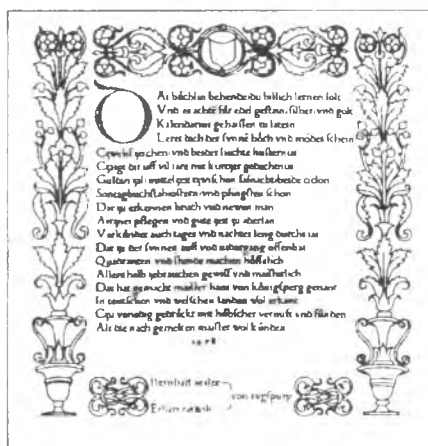 DAs büchlin behende du billich lernen solt
Vnd es achte für edel gestain, silber vnd golt
Kalendarius gehaissen zu latein
Leret dich der sunnē höch vnd mōdes schein
zaichen vnd beider liechte
uff vil iare mit kurczer
Gulden zal
Sontagbuchstab vnd pfingsten schon
Dar zu erkennen bruch vnd newen man
Arczney pflegen vnd gute zeit zu aderlan
Verkündet auch tages vnd nachtes leng durch
Dar zu der sunnen auff vnd offenbar
Quadranten vnd machen höfflich
Allenthalb gebrauchen gewiß vnd maisterlich
Das hat gemacht maister hans von königsperg genant
In teutschen vnd welschen landen wol erkant
Czu venedig getrückt mit hübscher vernuft vnd
Als die nach gemelten maister wol künden
1478
Bernhart maler
Erhart ratdolt
von augspurg